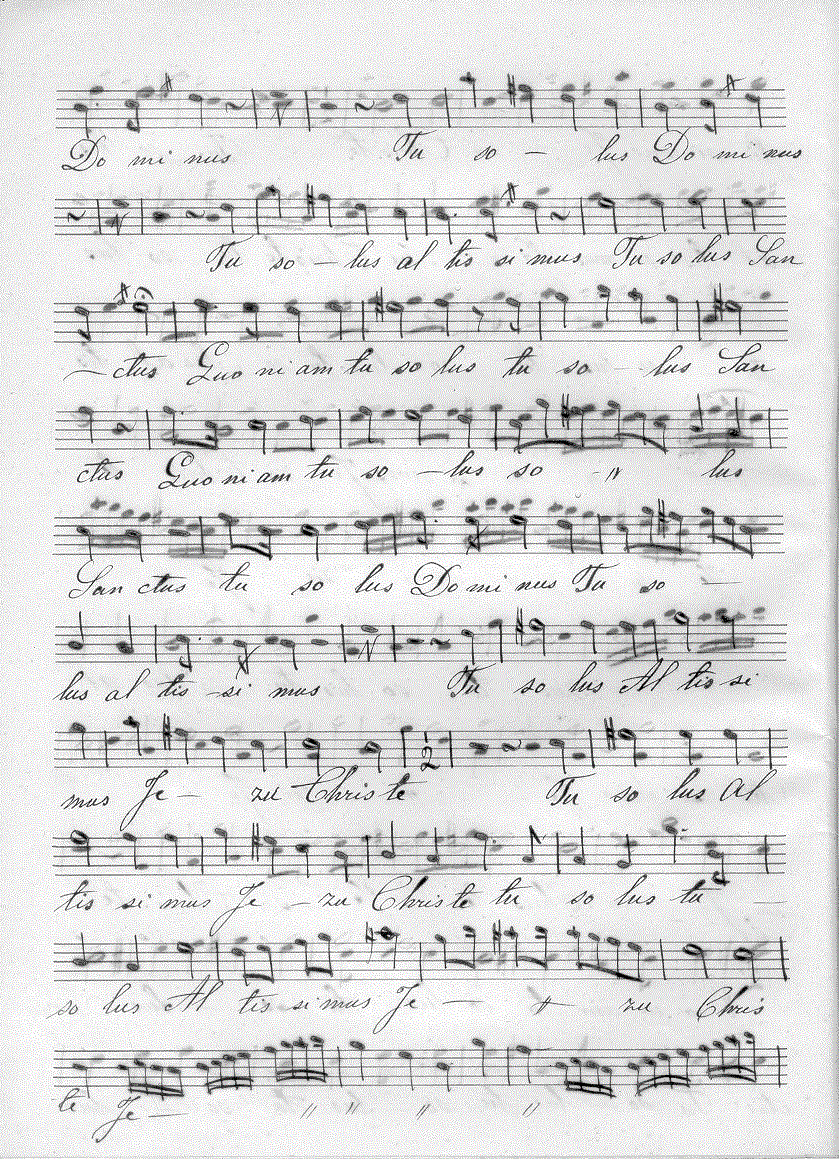 Do mi nus Tu so – lus Do mi nus
Tu so – lus al tis si mus Tu so lus San
– ctus Quo ni am tu so lus tu so – lus San
ctus Quo ni am tu so – lus so – " lus
San ctus tu so lus Do mi nus Tu so –
lus al tis – si mus Tu so lus Al tis si
mus Je – zu Chris te Tu so lus Al
tis si mus Je – zu Chris te tu so lus tu –
so lus Al tis si mus Je – " zu Chris
te Je – " " " "